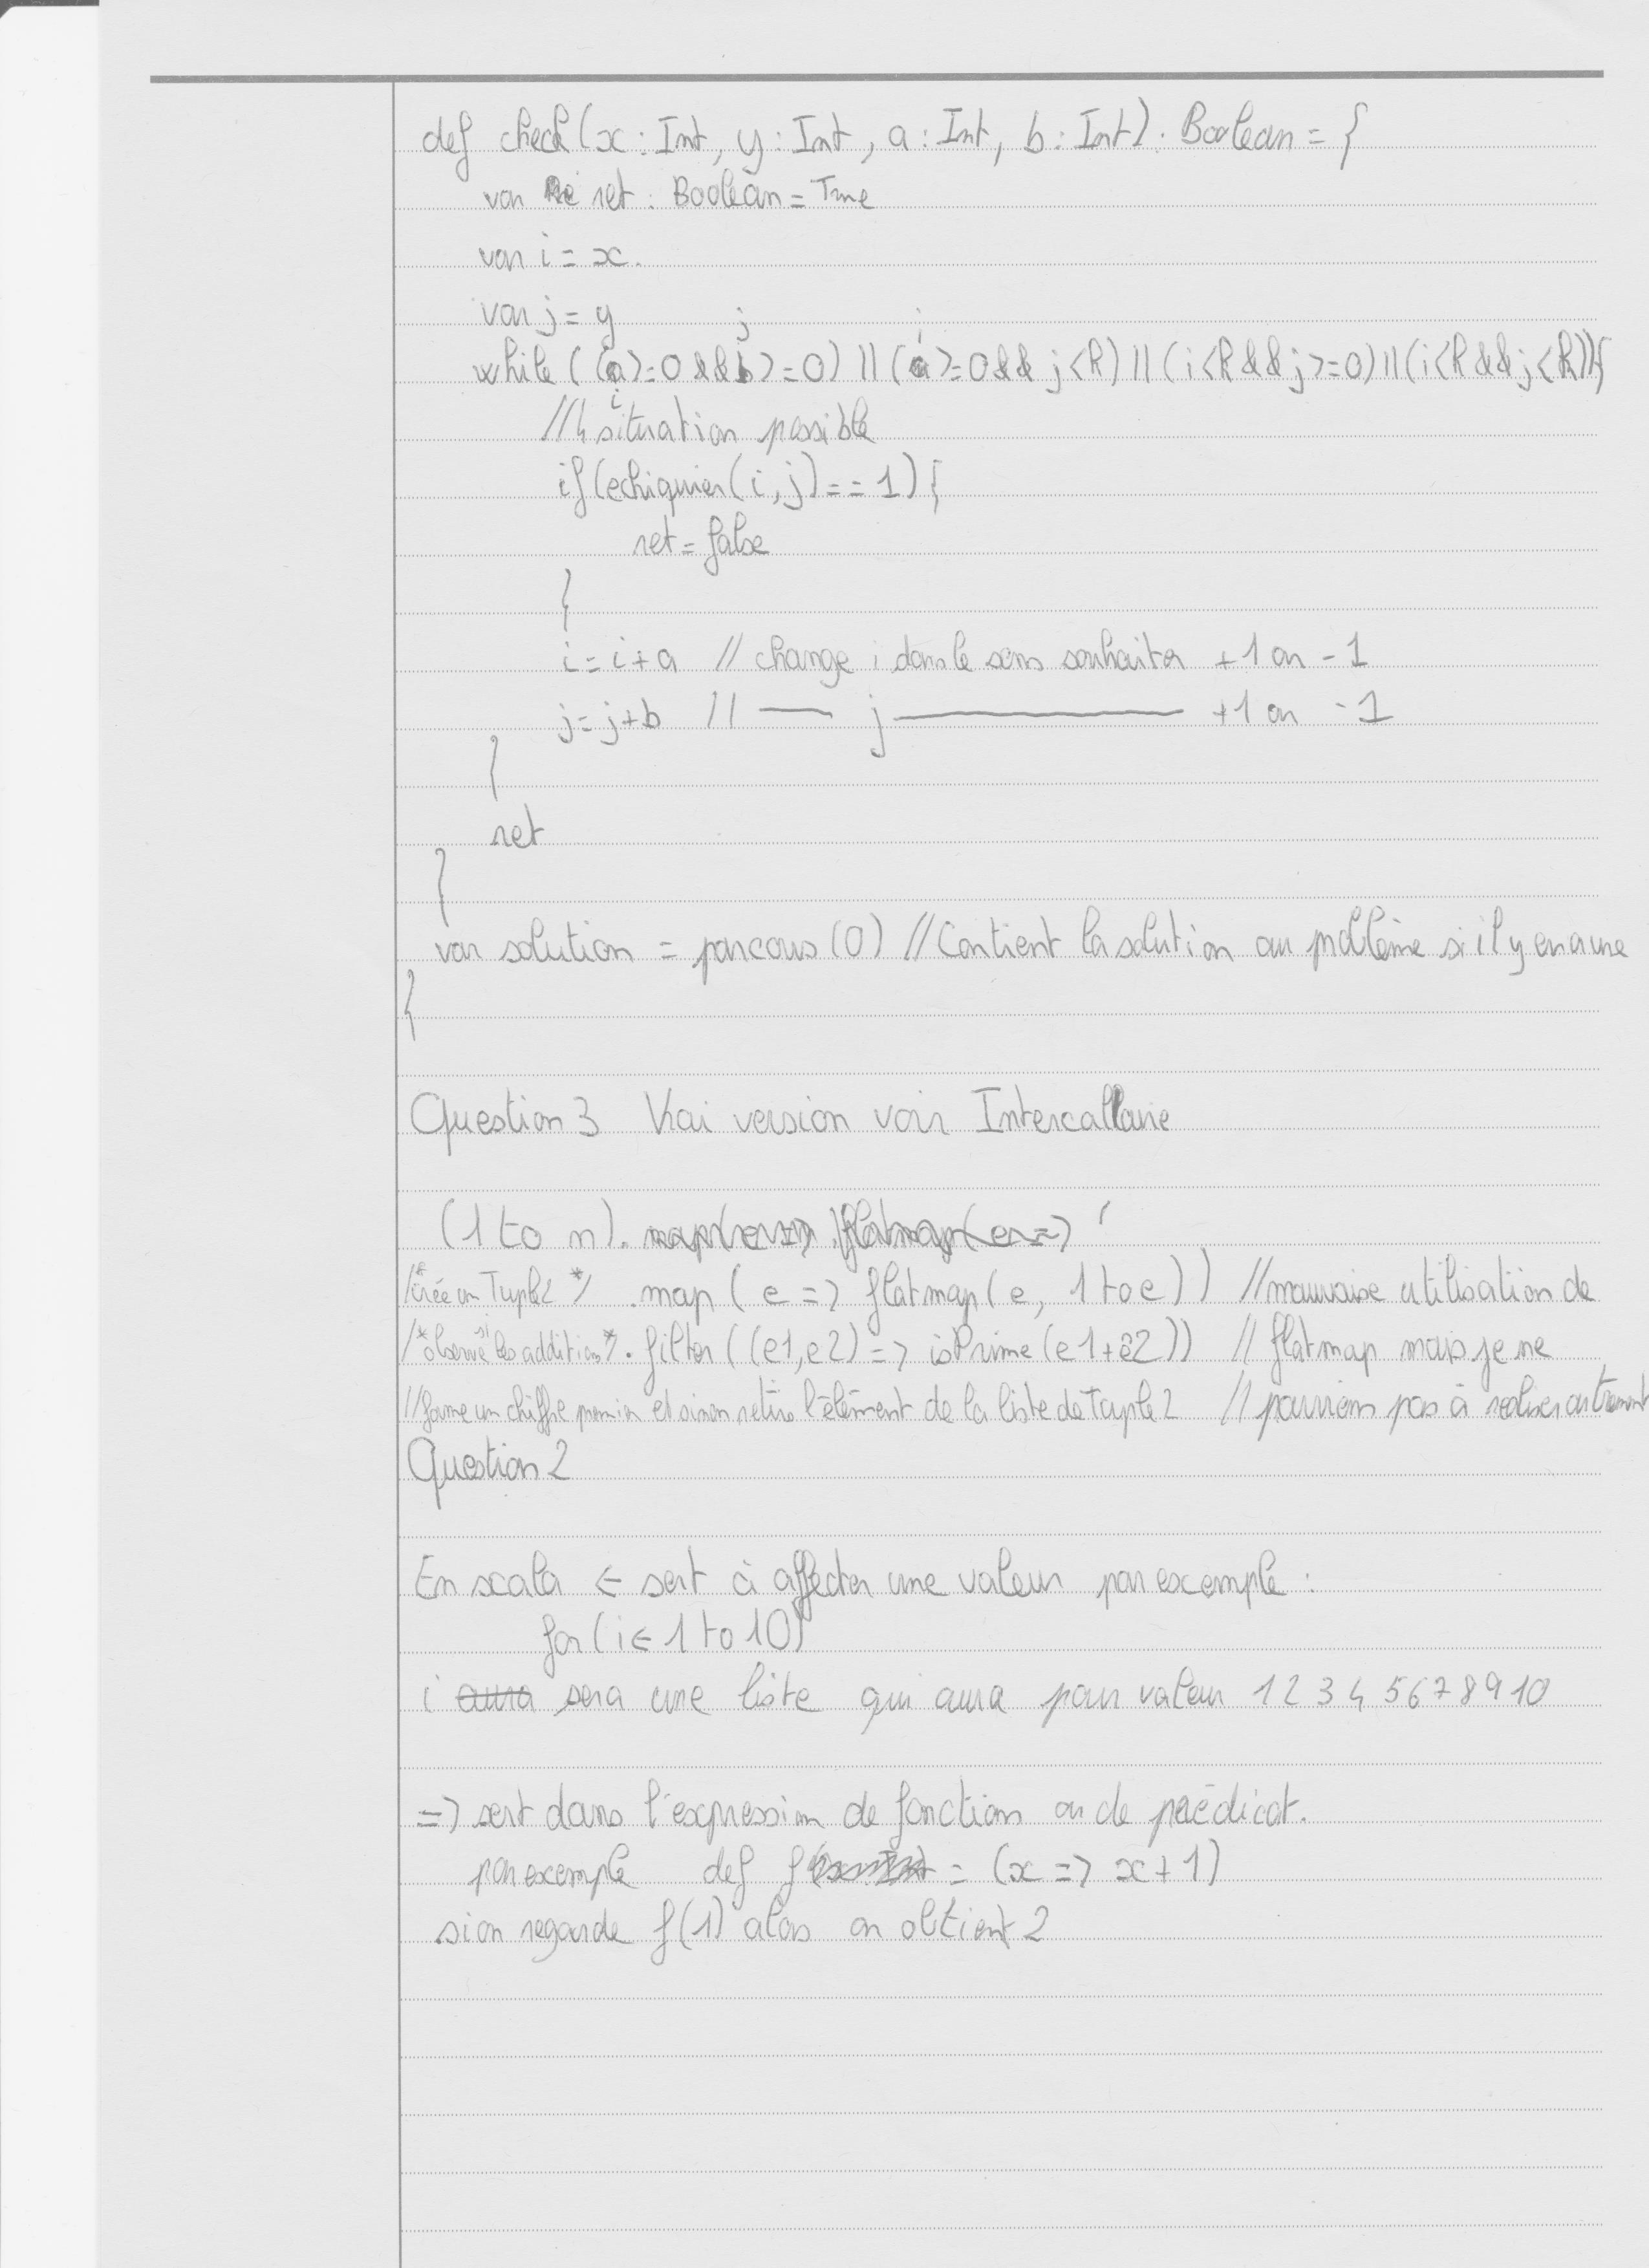 def check(x : Int, y : Int, a : Int, b : Int) : Boolean = {
var ret : Boolean = True
var i = x.
var j = y
while ((i>=0 && j>=0) || (i>=0 && j<k) || (i<k && j>=0) || (i<k && j<k)){
//4 situation possible
if(echiquier(i,j)==1){
ret = false
}
i = i+a // change i dans le sens souhaiter +1 ou -1
j = j+b // — j — +1 ou -1
}
ret
}
var solution = parcous(0) // Contient la solution au problème si il y en a une
}
Question 3 Vrai version voir Intercallaire
(1 to n).
/*crée un Tuple2 */ .map(e => flatmap(e, 1 to e)) //mauvaise utilisation de
/*observe si les addition*/ .filter((e1,e2) => isPrime(e1+e2)) // flatmap mais je ne
//forme un chiffre premier et sinon retire l'élément de la liste de Tuple2 // parviens pas à realiser autrement
Question 2
En scala <- sert à affecter une valeur par exemple :
for(i <- 1 to 10)
i aura sera une liste qui aura pour valeur 1 2 3 4 5 6 7 8 9 10
=> sert dans l'expression de fonctions ou de prédicat.
par exemple def f = (x => x+1)
si on regarde f(1) alors on obtient 2